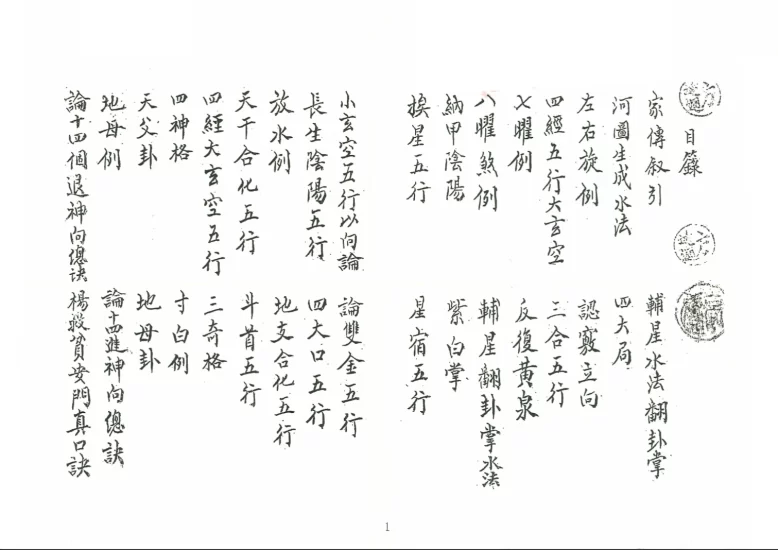 目錄
家傳叙引
輔星水法翻卦掌
河圖生成水法
四大局
左右旋例
認竅立向
四經五行大玄空
三合五行
七曜例
反復黃泉
八曜煞例
輔星翻卦掌水法
納甲陰陽
紫白掌
挨星五行
星宿五行
小玄空五行以向論
論雙金五行
長生陰陽五行
四大口五行
放水例
地支合化五行
天干合化五行
斗首五行
四經大玄空五行
三奇格
四神格
寸白例
天父卦
地母卦
地母例
論十四進神向總訣
論十四個退神向總訣
楊救貧安門真口訣
1